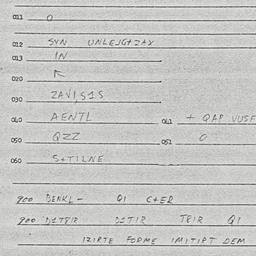 011 0
012 SYN UNLEJG+ZAX
013 IN
020
030 ZAVI,S1S
040 AENTL 041 + QAP VUSF
050 QZZ 051 0
060 S+TILNE
900 BENKL- QI C+ER
900 TPIR QI
IZIRTE FORME IMITIPT DEM